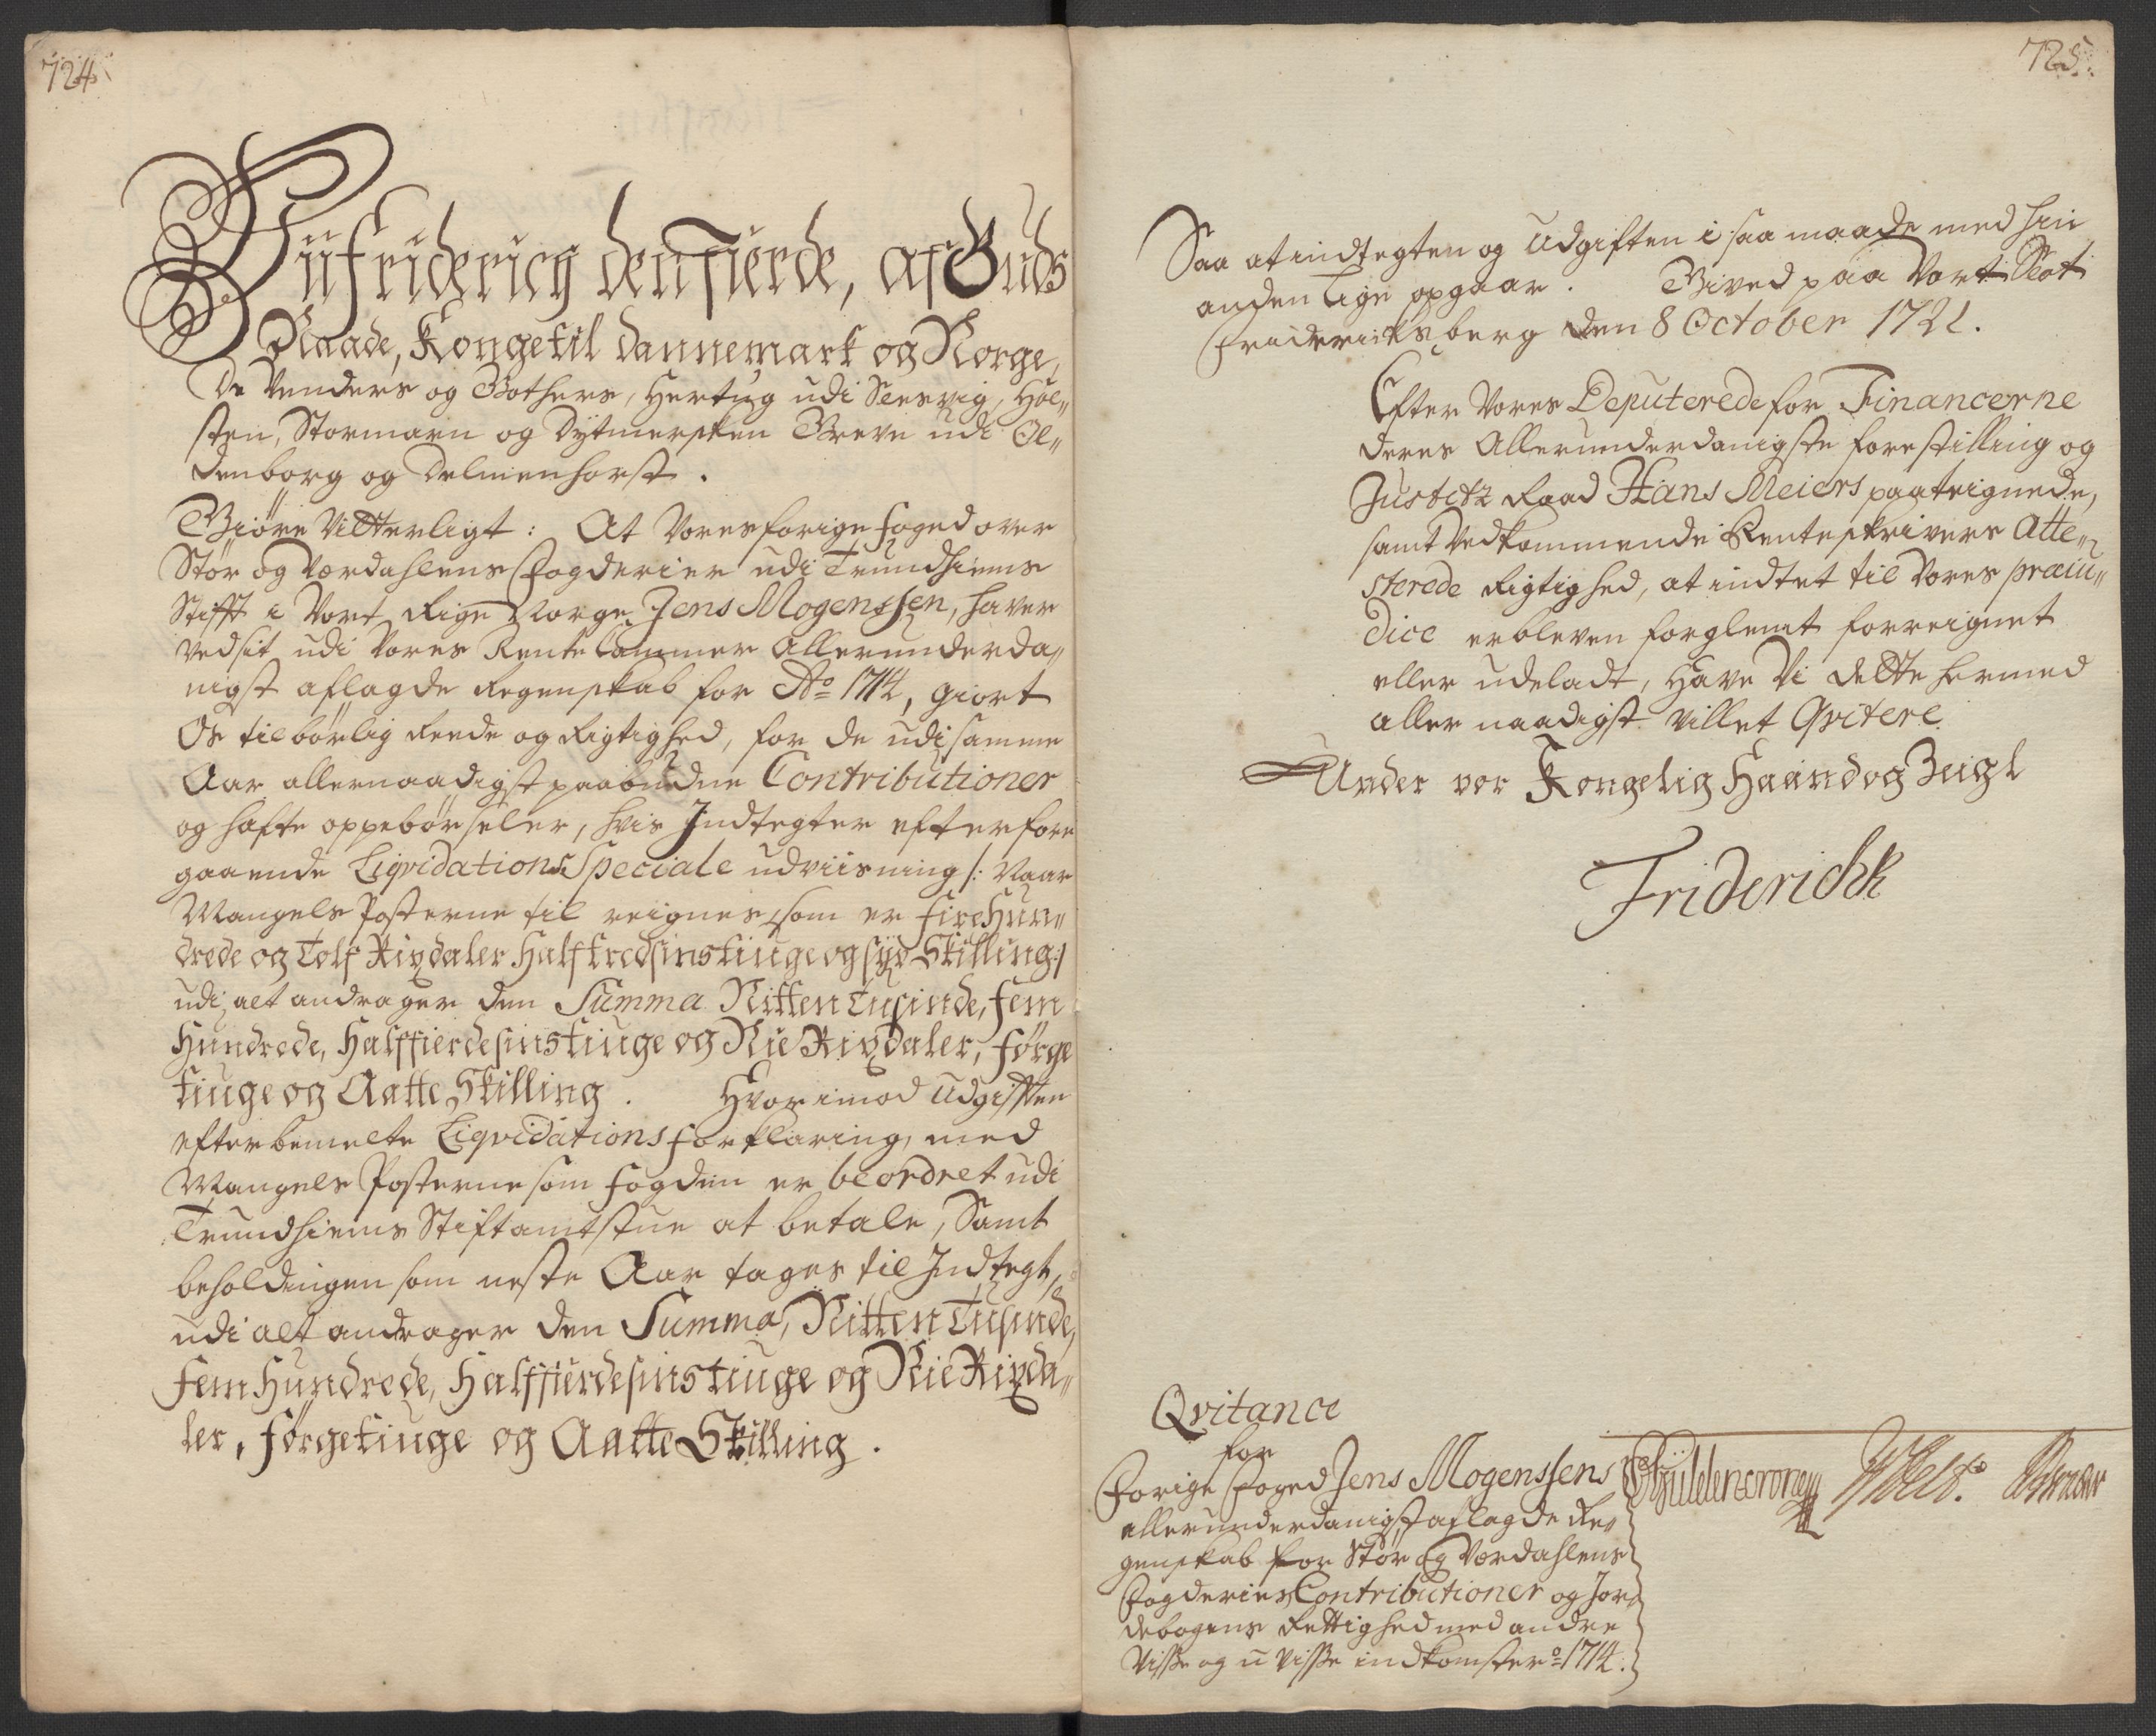 724
Vii Friderich den Fierde, af Guds
Naade, Konge til Dannemark og Norge,
De Venders og Gothers, Hertug udi Slesvig, Hol„
sten, Stormarn og Dytmersken Greve udi Ol„
denborg og Delmenhorst.
Giöre Vitterligt: At Vores forige foged over
Stör og Værdahlens Fogderier udi Trundhiems
Stifft i Vort Rige Norge Jens Mogenssen, haver
ved sit udi Vores Rente Cammer Allerunderda„
nigst aflagde Regenskab for Ao 1714, giort
Os tilbörlig Reede og Rigtighed, for de udi samme
Aar allernaadigst paabudne Contributioner
og hafte oppebörseler, hvis Indtegter efter fore
gaaende Liqvidations Speciale udviisning /: Naar
Mangels Posterne til reignes, som er Fire Hun„
drede og Tolf Rixdaler Half tredsinstiuge og syv Skilling :/
udi alt andrager den Summa Nitten Tusinde, Fem
Hundrede, Halffierdesinstiuge og Nie Rixdaler, Førge
tiuge og Aatte Skilling. Hvorimod Udgifften
efter bemelte Liqvidations forklaring, med
Mangels Posterne som fogden er beordret udi
Trundhiems Stiftamtstue at betale, Samt
beholdningen som neste Aar tages til Indtegt,
udi alt andrager den Summa, Nitten Tusinde,
Fem Hundrede, Halffierdesinstiuge og Nie Rixda„
ler, Førgetiuge og Aatte Skilling.
725.
Saa at indtegten og Udgiften i saa maade med hin
anden lige opgaar. Gived paa Vort Slot
Friderichsberg den 8 October 1721.
Efter Vores Deputerede for Financerne
deres Allerunderdanigste forestilling og
Justitz Raad Hans Meiers paateignede,
samt Vedkommende Renteskrivers Atte„
sterede Rigtighed, at indtet til Vores præiu„
dice er bleven forglemt forreignet
eller udeladt, Have Vi dette hermed
aller naadigst villet Qvitere
Under vor Kongelig Haand og Zeigl
Friderichk
Qvitance
for
Forige Foged Jens Mogenssens
allerunderdanigst aflagde Re„
genskab for Stör og Værdahlens
Fogderies Contributioner og Jor„
debogens Rettighed med andre
Visse og u Visse indkomster o 1714.
Gÿldencrone